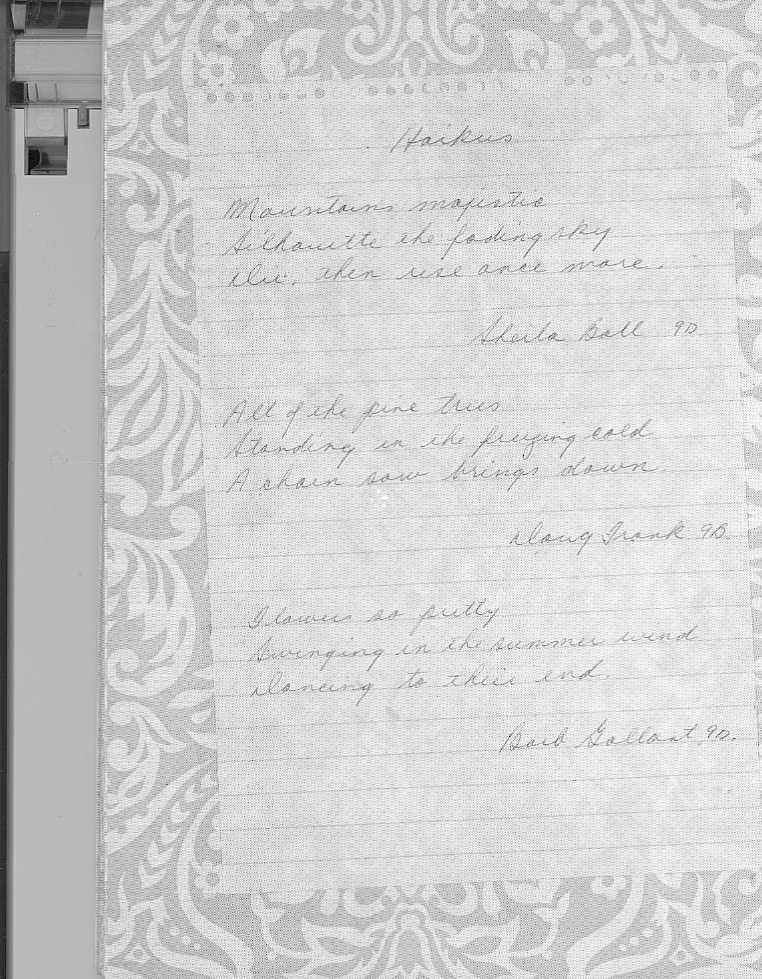 Haikus
Mountains majestic
Silhouette the fading sky
Die, then rise once more.
Sheila Ball 9D
All of the pine trees
Standing in the freezing cold
A chain saw brings down
Doug Frank 9D.
Flowers so pretty
Swinging in the summer wind
Dancing to their end.
Barb Gallant 9D.